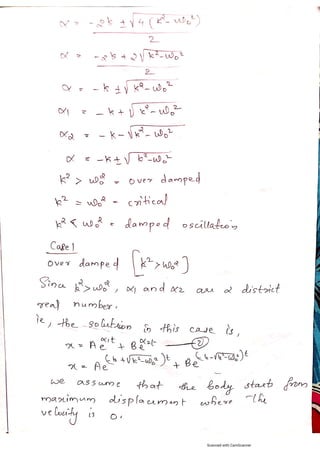 α = -2k ± √4(k²-ω₀²)
2
α = -2k ± 2√k²-ω₀²
2
α = -k ± √k²-ω₀²
α1 = -k + √k²-ω₀²
α2 = -k - √k²-ω₀²
α = -k ± √k²-ω₀²
k² > ω₀² = over damped
k² = ω₀² - critical
k² < ω₀² = damped oscillation
Case 1
Over damped [k² > ω₀²]
Since k² > ω₀², α1 and α2 are 2 distict
real number.
ie, the solution in this case is,
x = A e^α1t + B e^α2t — ②
x = A e^(-k+√k²-ω₀²)t + B e^(-k-√k²-ω₀²)t
we assume that the body starts from
maximum displacement where the
velocity is 0.
Scanned with CamScanner